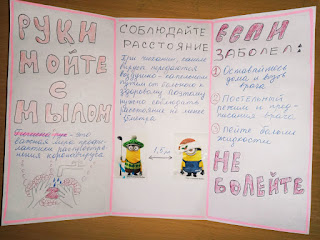 РУКИ
МОЙТЕ
С
МЫЛОМ
Гигиена рук - это
важная мера профи-
лактики распростра-
нения коронавируса
СОБЛЮДАЙТЕ
РАССТОЯНИЕ
При чихании, кашле
вирус передается
воздушно-капельным
путем от больного к
здоровому. Поэтому
нужно соблюдать
расстояние не менее
1,5м
ЕСЛИ
ЗАБОЛЕЛ
1 Оставайтесь
дома и
врача
2 Постельный
и пред-
писания врача.
3 пейте больше
жидкости
НЕ
БОЛЕЙТЕ